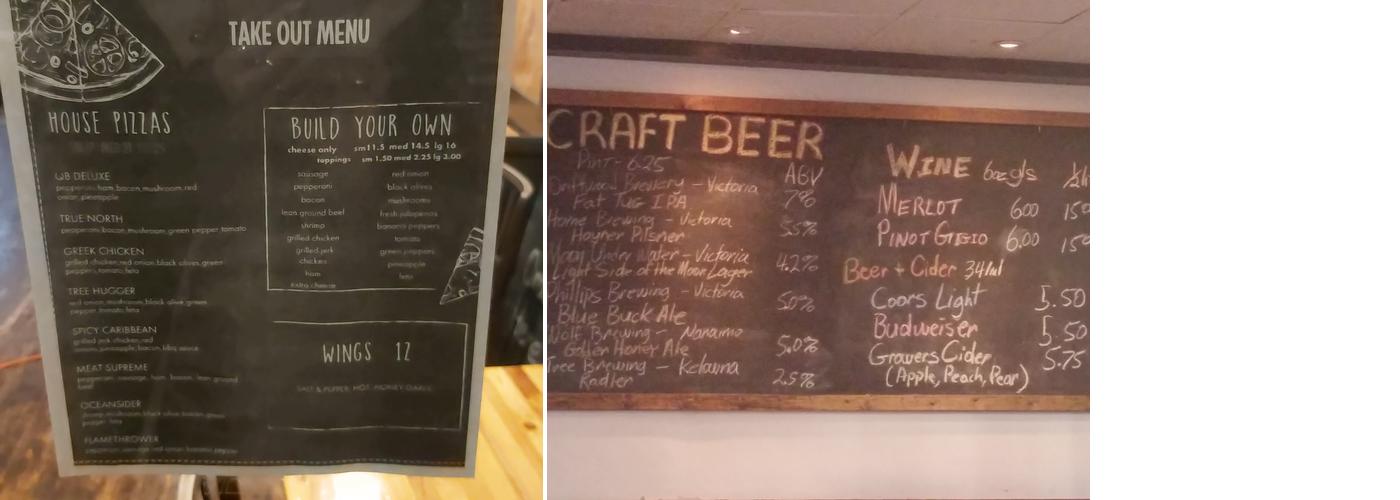 TAKE OUT MENU
HOUSE PIZZAS
QB DELUXE
pepperoni,ham,bacon,mushroom,red
onion,pineapple
TRUE NORTH
pepperoni,bacon,mushroom,green pepper,tomato
GREEK CHICKEN
grilled chicken,red onion,black olives,green
peppers,tomato,feta
TREE HUGGER
red onion,mushroom,black olive,green
pepper,tomato,feta
SPICY CARIBBEAN
grilled jerk chicken,red
onions,pineapple,bacon,bbq sauce
MEAT SUPREME
pepperoni, sausage, ham, bacon, lean ground
beef
OCEANSIDER
shrimp,mushroom,black olive,bacon,green
pepper,feta
FLAMETHROWER
pepperoni,sausage,red onion,banana pepper
BUILD YOUR OWN
cheese only sm11.5 med 14.5 lg 16
toppings sm 1.50 med 2.25 lg 3.00
sausage
pepperoni
bacon
lean ground beef
shrimp
grilled chicken
grilled jerk
chicken
ham
extra cheese
red onion
black olives
mushrooms
fresh jalapenos
banana peppers
tomato
green peppers
pineapple
feta
WINGS 12
SALT & PEPPER, HOT, HONEY GARLIC
CRAFT BEER
Pint - 6.25 ABV
Driftwood Brewery - Victoria
Fat Tug IPA 7%
Home Brewing - Victoria
Hoyner Pilsner 5.5%
Under Water - Victoria
Light Side of the Moon Lager 4.2%
Phillips Brewing - Victoria
Blue Buck Ale 5.0%
Wolf Brewing - Nanaimo
Golden Honey Ale 5.0%
Tree Brewing - Kelowna
Radler 2.5%
WINE 6oz gls
MERLOT 6.00
PINOT GIGIO 6.00
Beer + Cider 341ml
Coors Light 5.50
Budweiser 5.50
Growers Cider 5.75
(Apple, Peach, Pear)